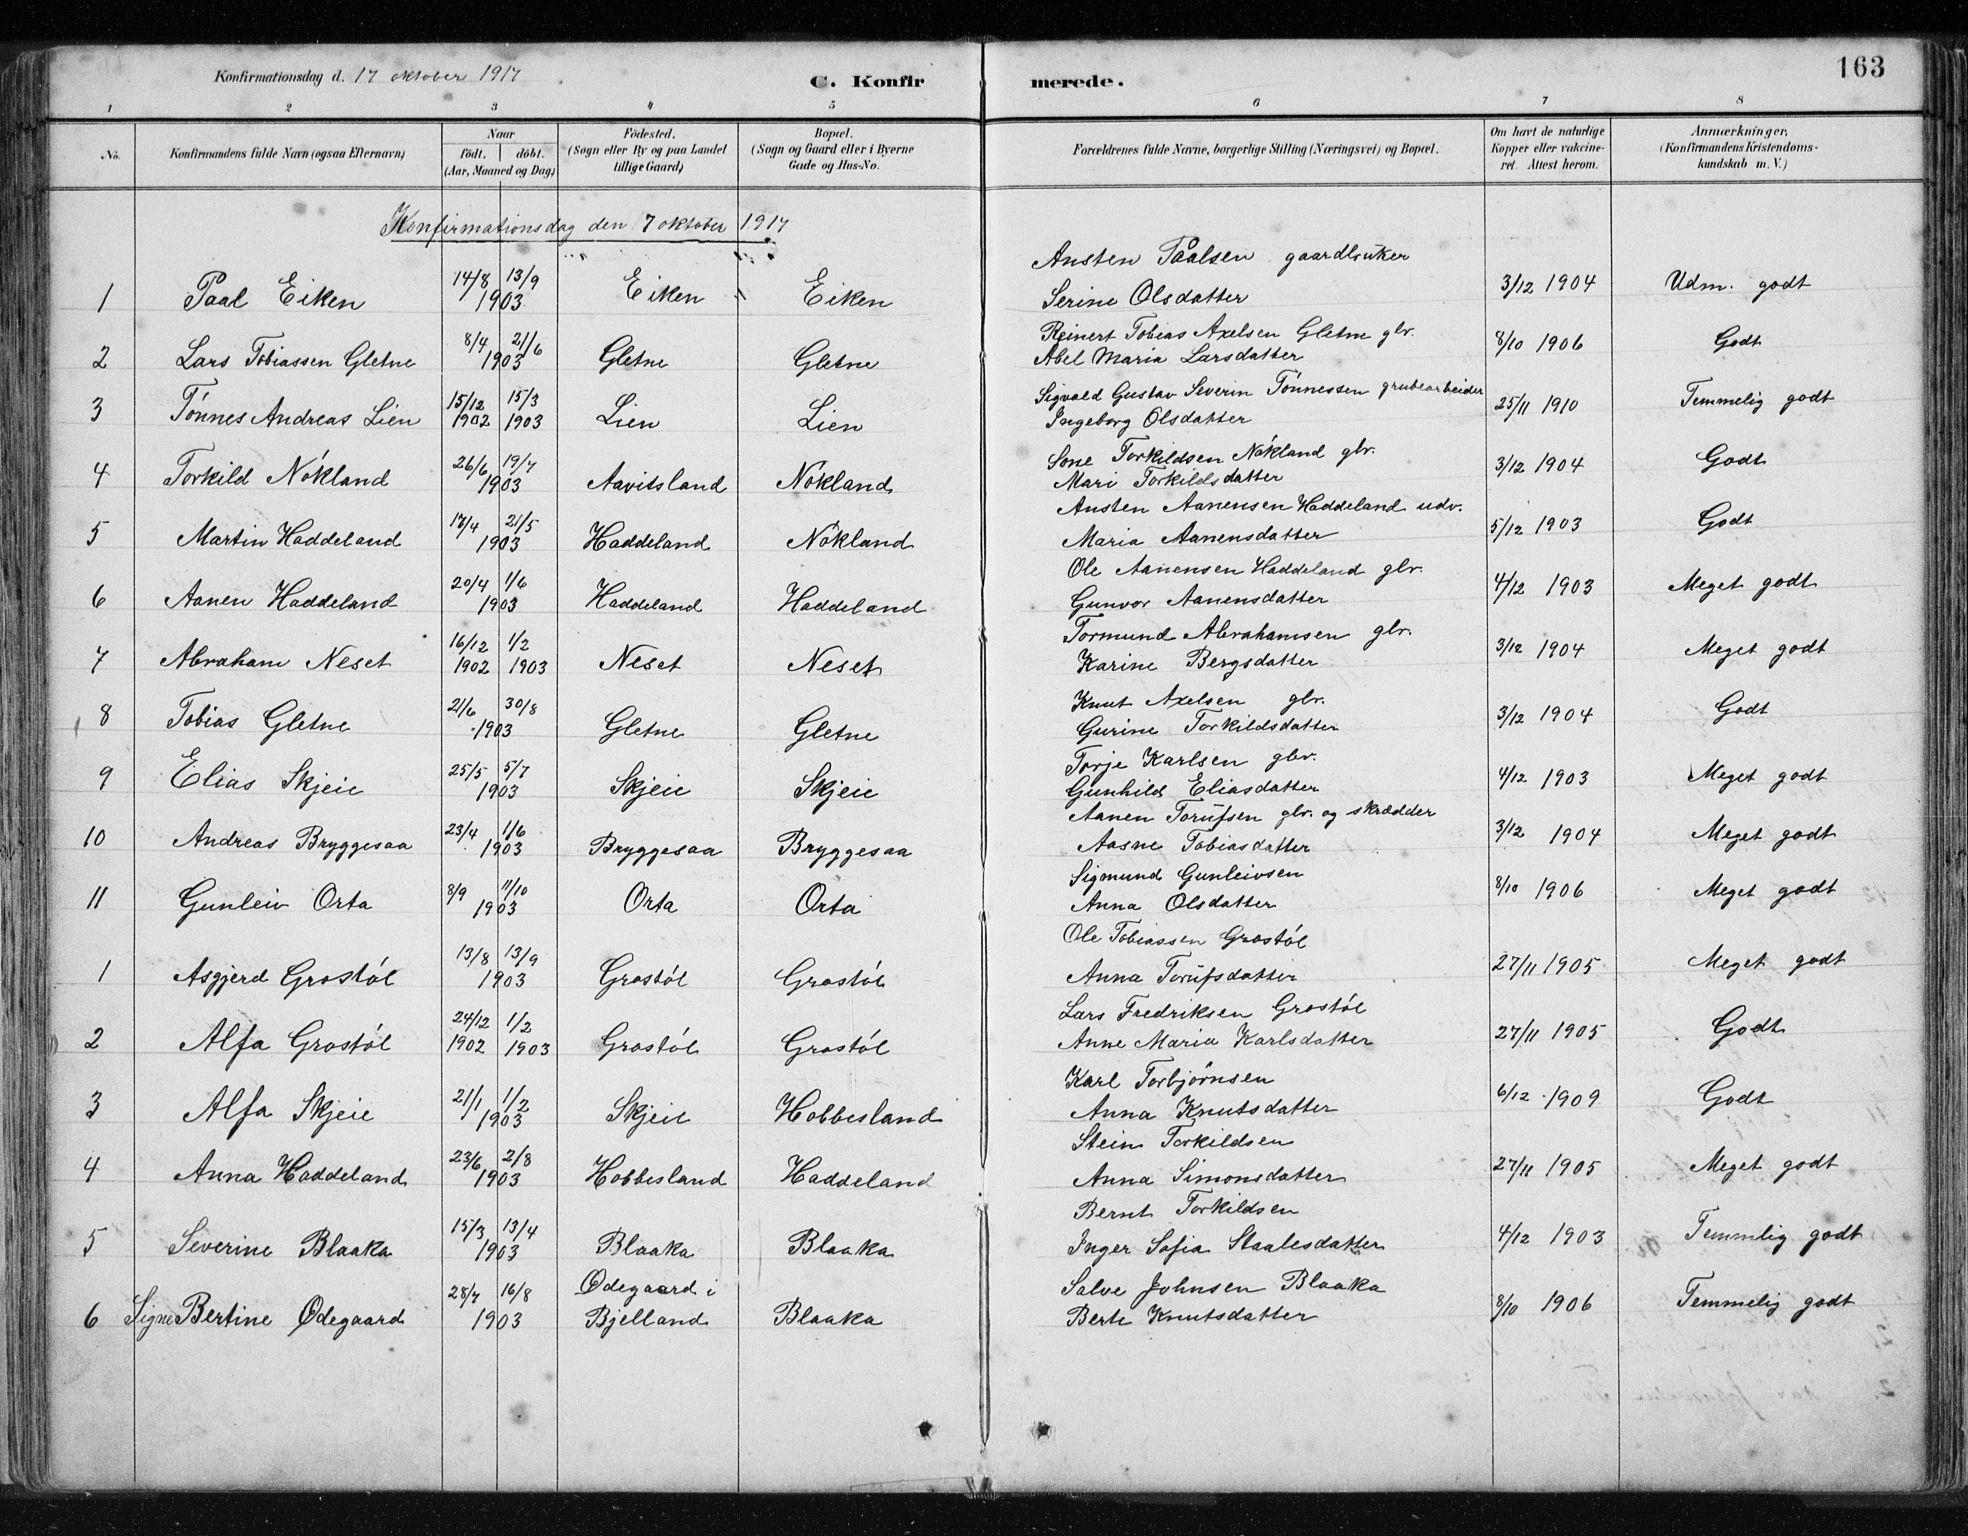 Konfirmationsdag d. 17 oktober 1917 C. Konfirmerede. 163
1 2 3 4 5 6 7 8
No. Konfirmandens fulde Navn (ogsaa Efternavn) Naar födt. döbt. (Aar, Maaned og Dag) Födested. (Sogn eller By og paa Landet tillige Gaard) Bopæl. (Sogn og Gaard eller i Byerne Gade og Hus-No. Forældrenes fulde Navne, borgerlige Stilling (Næringsvei) og Bopæl. Om havt de naturlige Kopper eller vakcineret. Attest herom. Anmærkninger. (Konfirmandens Kristendomskundskab m. V.)
Konfirmationsdag den 7 oktober 1917
1 Paal Eiken 14/8 13/9 1903 Eiken Eiken Austen Paalsen gaardbruker Serine Olsdatter 3/12 1904 Udm. godt
2 Lars Tobiassen Gletne 8/4 21/6 1903 Gletne Gletne Reinert Tobias Axelsen Gletne gbr. Abel Maria Larsdatter 8/10 1906 Godt
3 Tönnes Andreas Lien 15/12 1902 15/3 1903 Lien Lien Sigvald Gustav Severin Tönnessen grubearbeider Ingeborg Olsdatter 25/11 1910 Temmelig godt
4 Torkild Nökland 26/6 19/7 1903 Aavitsland Nökland Sone Torkildsen Nökland gbr. Mari Torkildsdatter 3/12 1904 Godt
5 Martin Haddeland 17/4 21/5 1903 Haddeland Nökland Austen Aanensen Haddeland udv. Maria Aanensdatter 5/12 1903 Godt
6 Aanen Haddeland 20/4 1/6 1903 Haddeland Haddeland Ole Aanensen Haddeland gbr. Gunvor Aanensdatter 4/12 1903 Meget godt
7 Abraham Neset 16/12 1902 1/2 1903 Neset Neset Tormund Abrahamsen gbr. Karine Bergsdatter 3/12 1904 Meget godt
8 Tobias Gletne 21/6 30/8 1903 Gletne Gletne Knut Axelsen gbr. Gurine Torkildsdatter 3/12 1904 Godt
9 Elias Skjeie 25/5 5/7 1903 Skjeie Skjeie Torje Karlsen gbr. Gunhild Eliasdatter 4/12 1903 Meget godt
10 Andreas Bryggesaa 23/4 1/6 1903 Bryggesaa Bryggesaa Aanen Torufsen gbr. og skrædder Aasne Tobiasdatter 3/12 1904 Meget godt
11 Gunleiv Orta 8/9 11/10 1903 Orta Orta Sigmund Gunleivsen Anna Olsdatter 8/10 1906 Meget godt
1 Asgjerd Grostöl 13/8 13/9 1903 Grostöl Grostöl Ole Tobiassen Grostöl Anna Torufsdatter 27/11 1905 Meget godt
2 Alfa Grostöl 24/12 1902 1/2 1903 Grostöl Grostöl Lars Fredriksen Grostöl Anne Maria Karlsdatter 27/11 1905 Godt
3 Alfa Skjeie 21/1 1/2 1903 Skjeie Hobbesland Karl Torbjörnsen Anna Knutsdatter 6/12 1909 Godt
4 Anna Haddeland 23/6 2/8 1903 Hobbesland Haddeland Stein Torkildsen Anna Simonsdatter 27/11 1905 Meget godt
5 Severine Blaaka 15/3 13/4 1903 Blaaka Blaaka Bernt Torkildsen Inger Sofia Staalesdatter 4/12 1903 Temmlig godt
6 Signe Bertine Ødegaard 28/7 16/8 1903 Ødegaard i Bjelland Blaaka Salve Johnsen Blaaka Berte Knutsdatter 8/10 1906 Temmelig godt